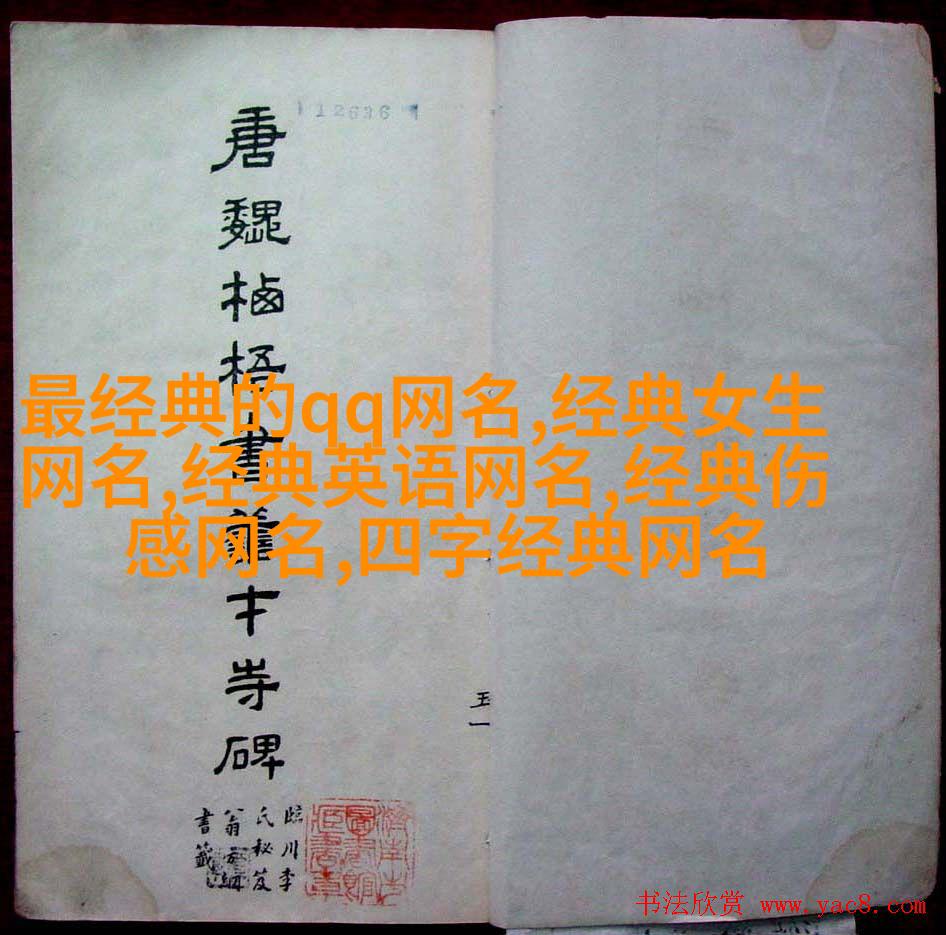 12636
唐魏栖梧書善才寺碑
臨川李
氏秘笈
翁方綱
書籤
最经典的qq网名,经典女生
网名,经典英语网名,经典伤
感网名,四字经典网名
书法欣赏 www.yac8.com